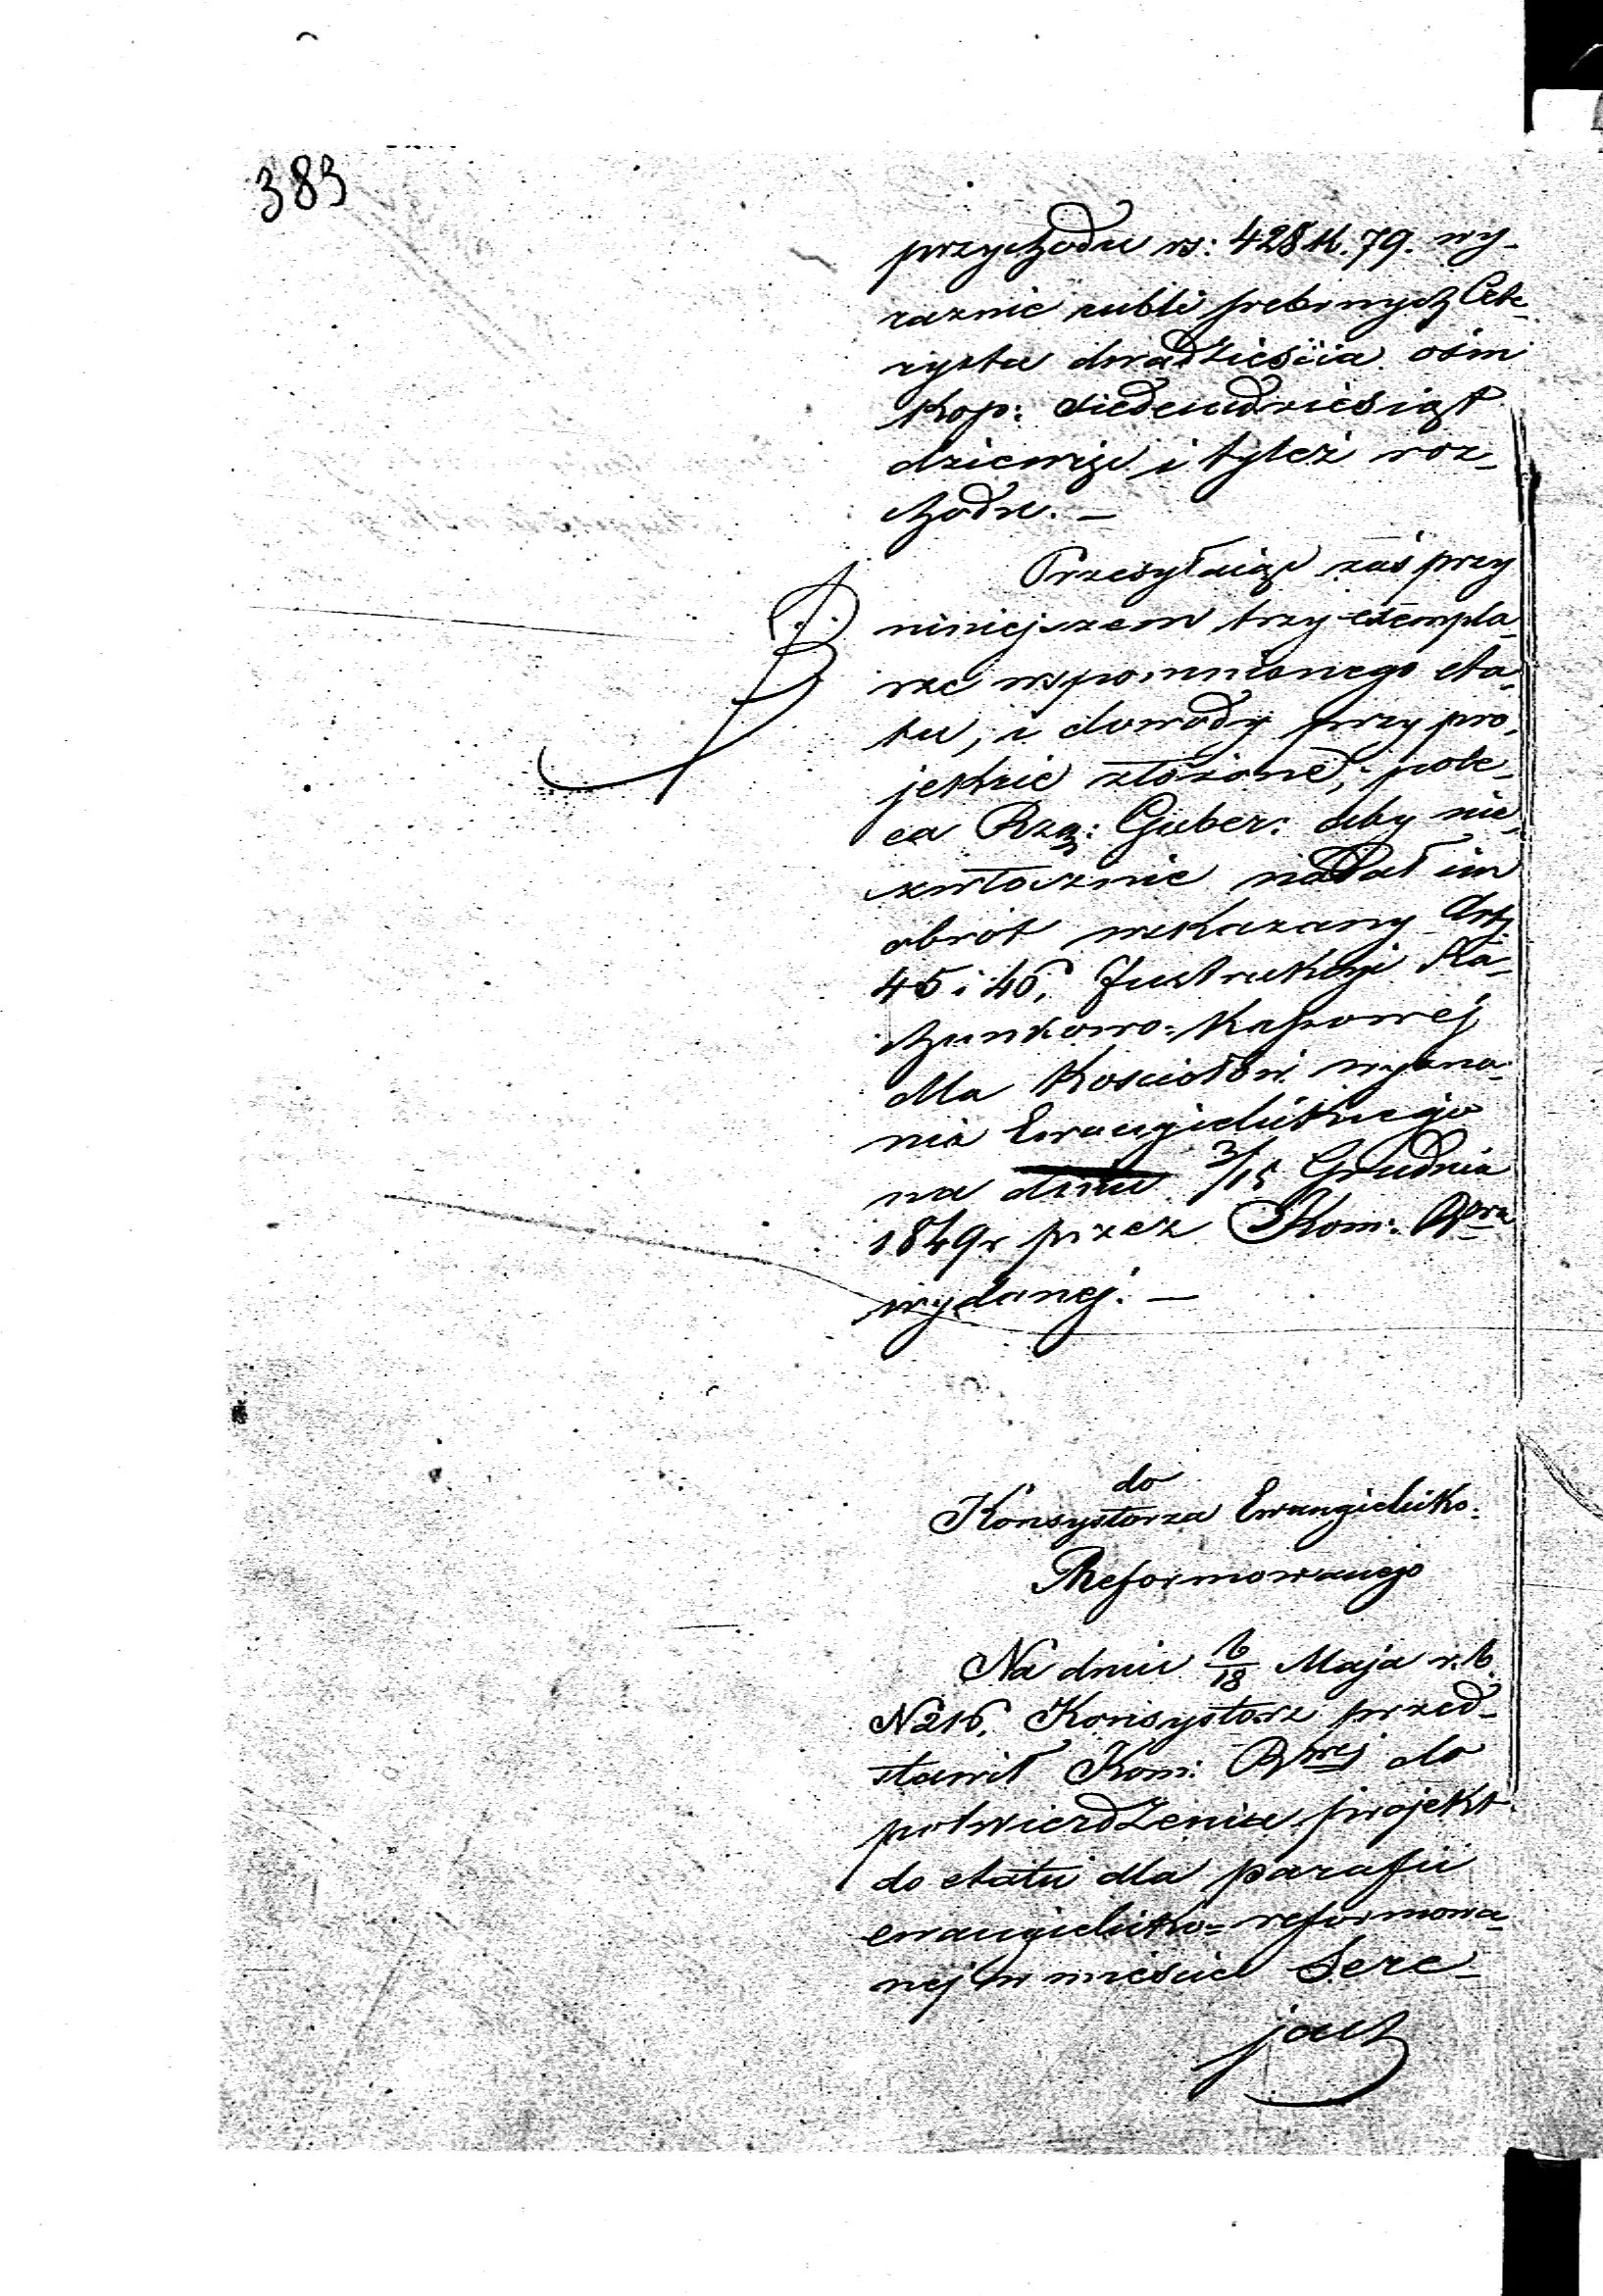 383
przychodu rs: 428 k. 79. wy-
raznie rubli srebrnych Czte-
rysta dwadzieścia ośm
kop: siedemdziesiąt
dziewięć i tyleż roz-
chodu. —
Przesyłając zaś przy
niniejszem trzy exempla-
rze wspomnionego eta-
tu, i dowody przy pro-
jekcie złożone, pole-
ca Rzą: Guber: aby nie-
zwłocznie nadał im
obrót wskazany Art
45 i 46, Instrukcji Ra-
chunkowo-Kassowej
dla Kościołów wyzna-
nia Ewangielickiego
na dniu 3/15 Grudnia
1849 r przez Kom: Rzą
wydanej. —
do
Konsystorza Ewangielicko-
Reformowanego
Na dniu 6/18 Maja r. b.
N 216. Konsystorz przed-
stawił Kom: Rzwej do
potwierdzenia projekt
do etatu dla parafii
ewangielicko-reformowa-
nej w mieście Sere-
jach